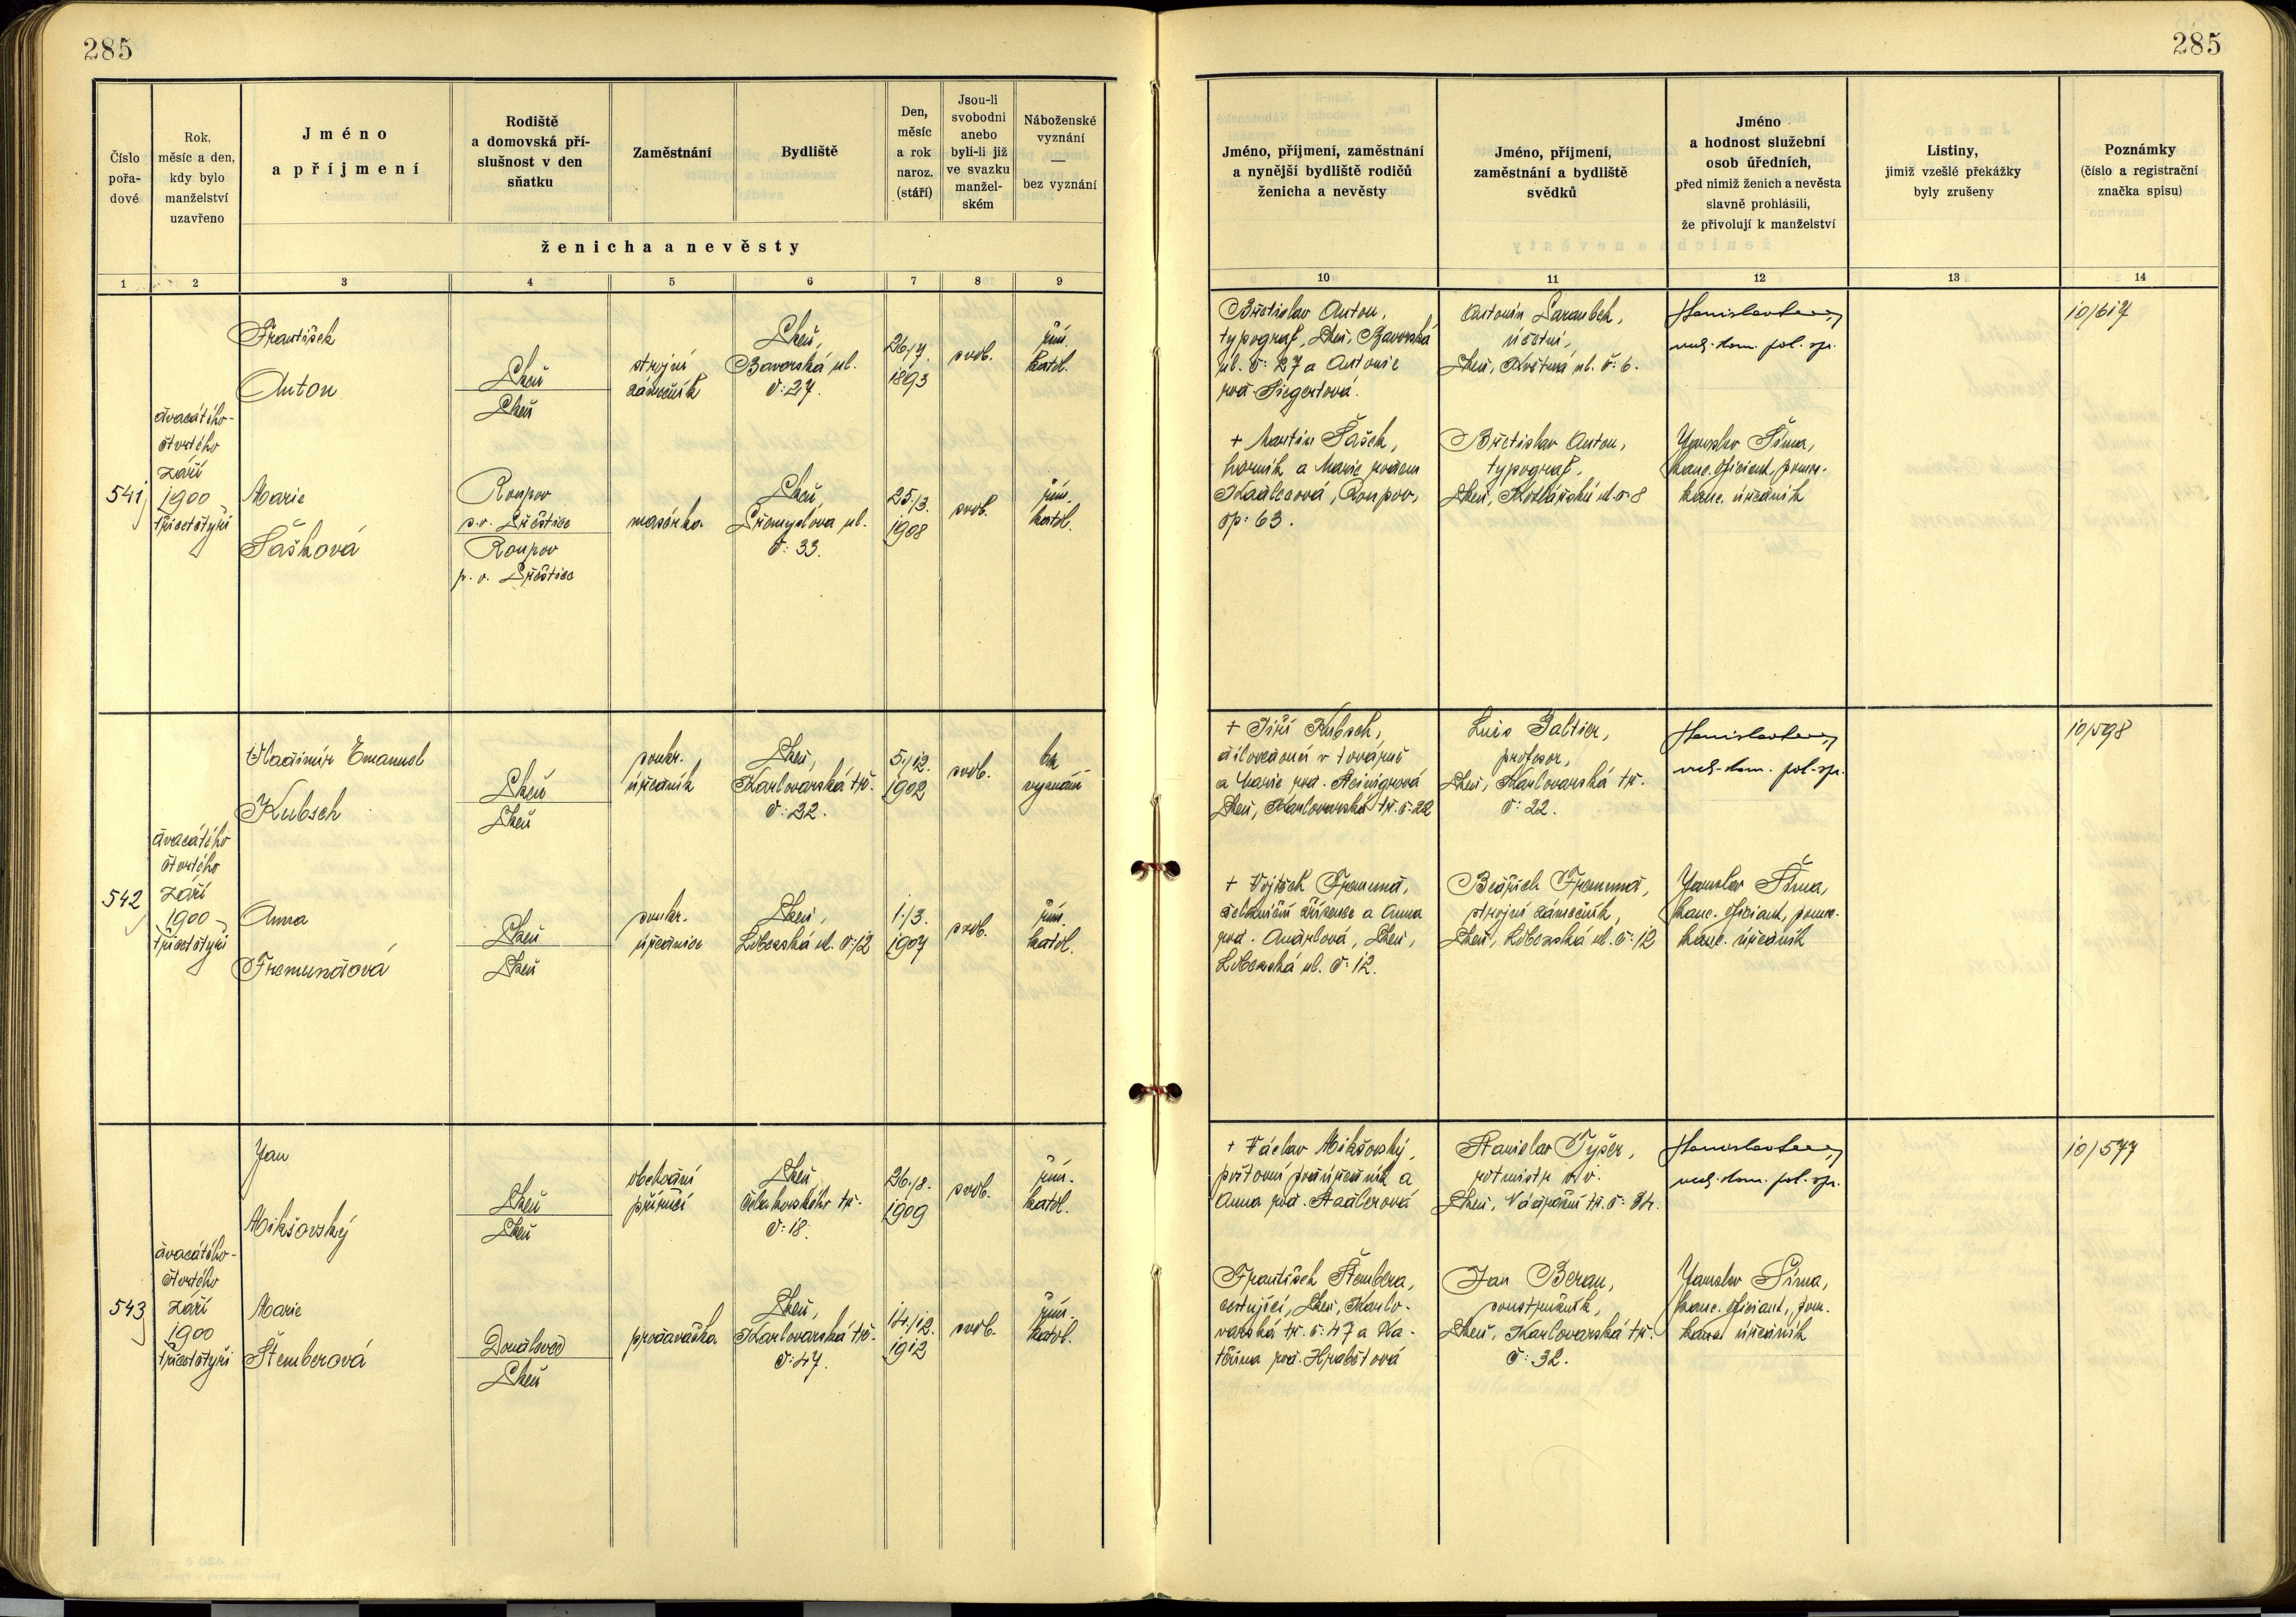 285
285
Číslo
pořa-
dové
Rok,
měsíc a den,
kdy bylo
manželství
uzavřeno
Jméno
a příjmení
Rodiště
a domovská pří-
slušnost v den
sňatku
Zaměstnání
Bydliště
Den,
měsíc
a rok
naroz.
(stáří)
Jsou-li
svobodni
anebo
byli-li již
ve svazku
manžel-
ském
Náboženské
vyznání
—
bez vyznání
ženicha a nevěsty
Jméno, příjmení, zaměstnání
a nynější bydliště rodičů
ženicha a nevěsty
Jméno, příjmení,
zaměstnání a bydliště
svědků
Jméno
a hodnost služební
osob úředních,
před nimiž ženich a nevěsta
slavně prohlásili,
že přivolují k manželství
Listiny,
jimiž vzešlé překážky
byly zrušeny
Poznámky
(číslo a registrační
značka spisu)
1 2 3 4 5 6 7 8 9 10 11 12 13 14
541
dvacátého-
čtvrtého
září
1900
třicetčtyři
František
Anton
Plzeň
Plzeň
strojní
zámečník
Plzeň,
Bavorská ul.
č: 27.
26./7.
1893
svob.
řím.
katol.
Marie
Šašková
Roupov
p. o. Přeštice
Roupov
p. o. Přeštice
masérka
Plzeň,
Přemyslova ul.
č: 33.
25./3.
1908
svob.
řím.
katol.
Břetislav Anton,
typograf, Plzeň, Bavorská
ul. č: 27 a Antonie
rod. Siegertová.
+ Martin Šašek,
horník a Marie rozen
Kadlecová, Roupov,
čp: 63.
Antonín
účetní,
Plzeň, Květná ul. č: 6.
Břetislav Anton,
typograf,
Plzeň, Kozlářská ul. č 8
pol. spr.
Jaroslav Šíma,
kanc. oficiant, pomoc.
kanc. úředník
10/617
542
dvacátého
čtvrtého
září
1900
třicetčtyři
Vladimír Emanuel
Kubsch
Plzeň
Plzeň
soukr.
úředník
Plzeň,
Karlovarská tř.
č: 22.
5./12.
1902
svob.
bez
vyznání
Anna
Fremundová
Plzeň
Plzeň
soukr.
úřednice
Plzeň,
Lobezská ul. č: 12
1./3.
1907
svob.
řím.
katol.
+ Jiří Kubsch,
dílovedoucí v továrně
a Marie rod.
Plzeň, Karlovarská tř. č: 22
+ Vojtěch Fremund,
železniční zřízenec a Anna
rod. Andrlová, Plzeň,
Lobezská ul. č: 12.
Luis Galtier,
profesor,
Plzeň, Karlovarská tř.
č: 22.
Bedřich Fremund,
strojní zámečník,
Plzeň, Lobezská ul. č: 12
pol. spr.
Jaroslav Šíma,
kanc. oficiant, pomoc.
kanc. úředník
10/598
543
dvacátého-
čtvrtého
září
1900
třicetčtyři
Jan
Mikšovský
Plzeň
Plzeň
obchodní
příručí
Plzeň,
Čelakovského tř.
č: 18.
26./8.
1909
svob.
řím.
katol.
Marie
Štemberová
Doudlevce
Plzeň
prodavačka
Plzeň,
Karlovarská tř.
č: 47.
14./12.
1912
svob.
řím.
katol.
+ Václav Mikšovský,
poštovní podúředník a
Anna rod. Stadlerová
František Štembera,
cestující, Plzeň, Karlo-
varská tř. č: 47 a Ka-
teřina rod. Hrabětová
Stanislav Tyšer,
rotmistr v. v.
Plzeň, Nádražní tř. č: 34.
Jan Beran,
soustružník,
Plzeň, Karlovarská tř.
č: 32.
pol. spr.
Jaroslav Šíma,
kanc. oficiant, pom.
kanc. úředník
10/577